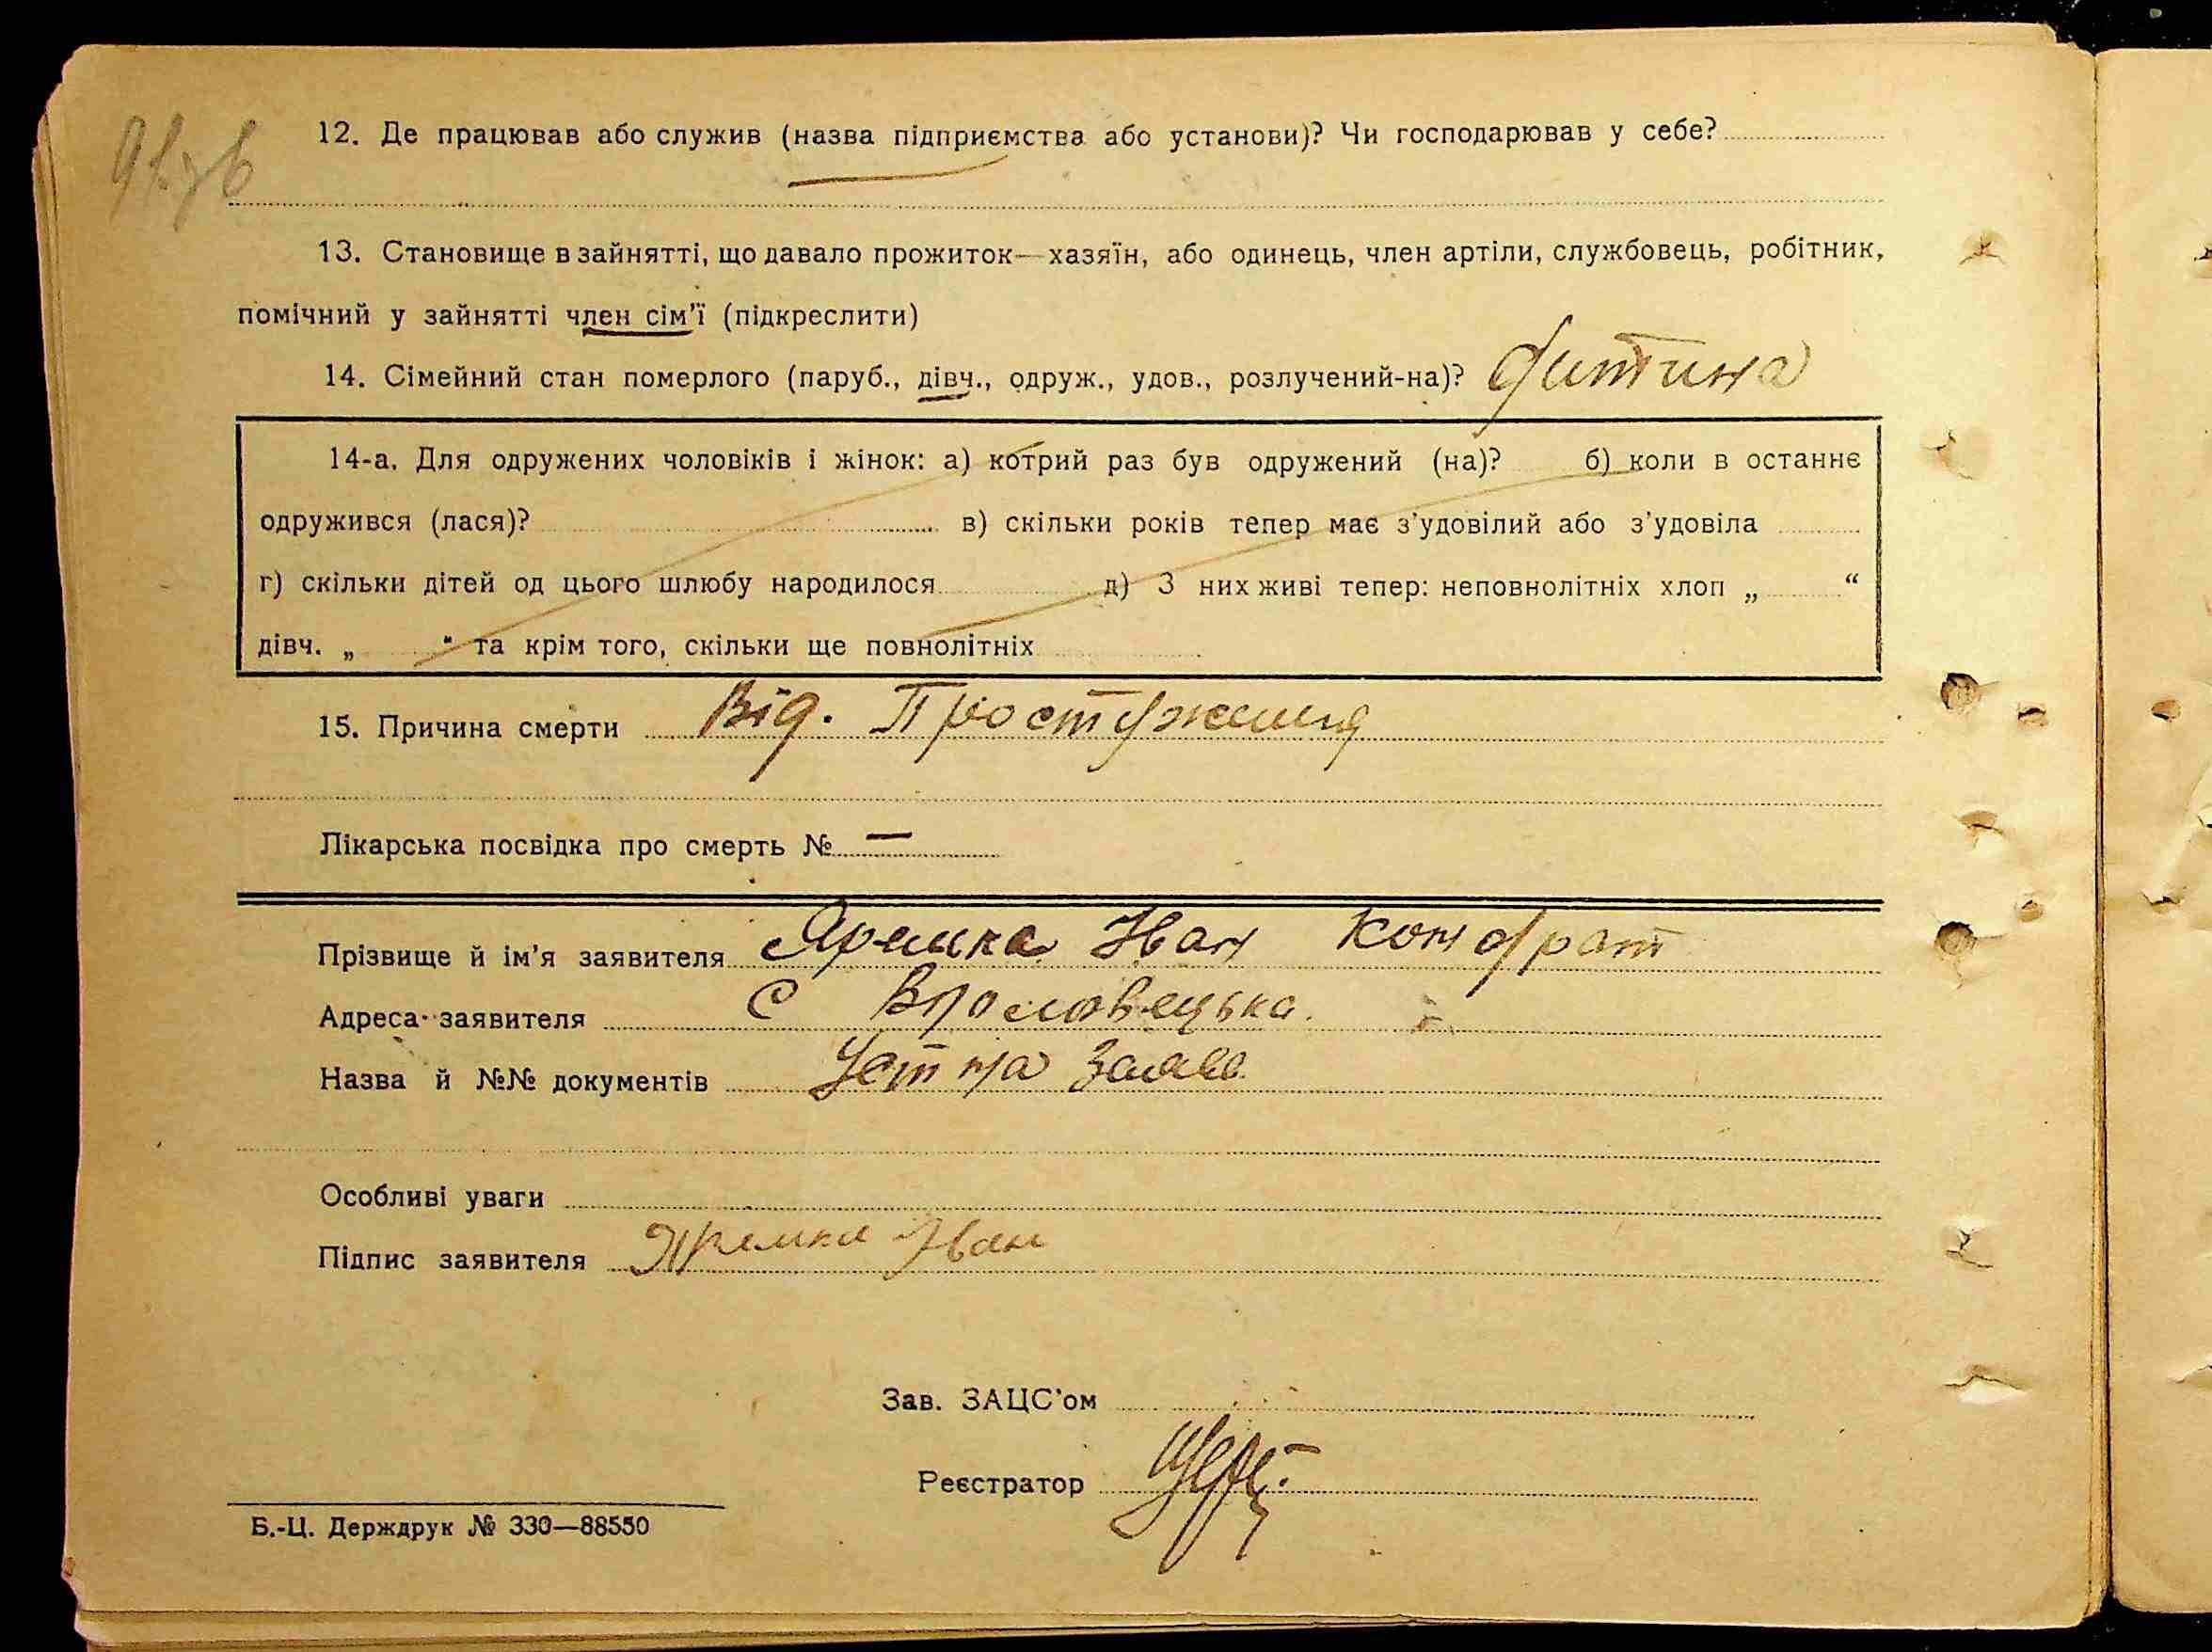 12. Де працював або служив (назва підприємства або установи)? Чи господарював у себе?
13. Становище в зайнятті, що давало прожиток—хазяїн, або одинець, член артіли, службовець, робітник,
помічний у зайнятті член сім'ї (підкреслити)
14. Сімейний стан померлого (паруб., дівч., одруж., удов., розлучений-на)? дитина
14-а. Для одружених чоловіків і жінок: а) котрий раз був одружений (на)? б) коли в останнє
одружився (лася)? в) скільки років тепер має з'удовілий або з'удовіла
г) скільки дітей од цього шлюбу народилося д) З них живі тепер: неповнолітніх хлоп „ “
дівч. „ “ та крім того, скільки ще повнолітніх
15. Причина смерти Від. Простуження
Лікарська посвідка про смерть № —
Прізвище й ім'я заявителя Яремка Іван Кондрат
Адреса заявителя С
Назва й №№ документів Устна Заява
Особливі уваги
Підпис заявителя Яремка Іван
Зав. ЗАЦС'ом
Реєстратор
Б.-Ц. Держдрук № 330—88550